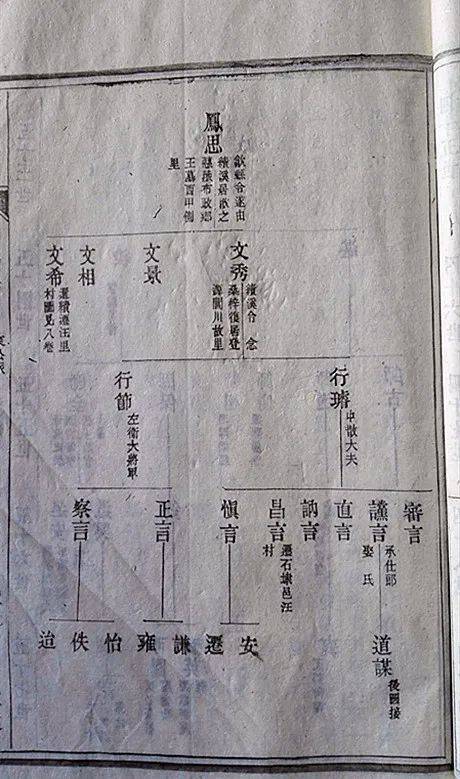 鳳思
歙縣令遂由
績溪居歙之
王墓百甲側
里
文秀
績溪令 念
桑梓復居登
源閌川故里
文景
文相
文希
遷績溪汪里
村圖見八卷
行璿
中散大夫
行節
左衛大將軍
審言
謹言
承仕郎
娶 氏
直言
訥言
昌言
遷石埭邑汪
村
慎言
正言
察言
道謀
後圖接
安
遷
謙
雍
怡
佚
迨